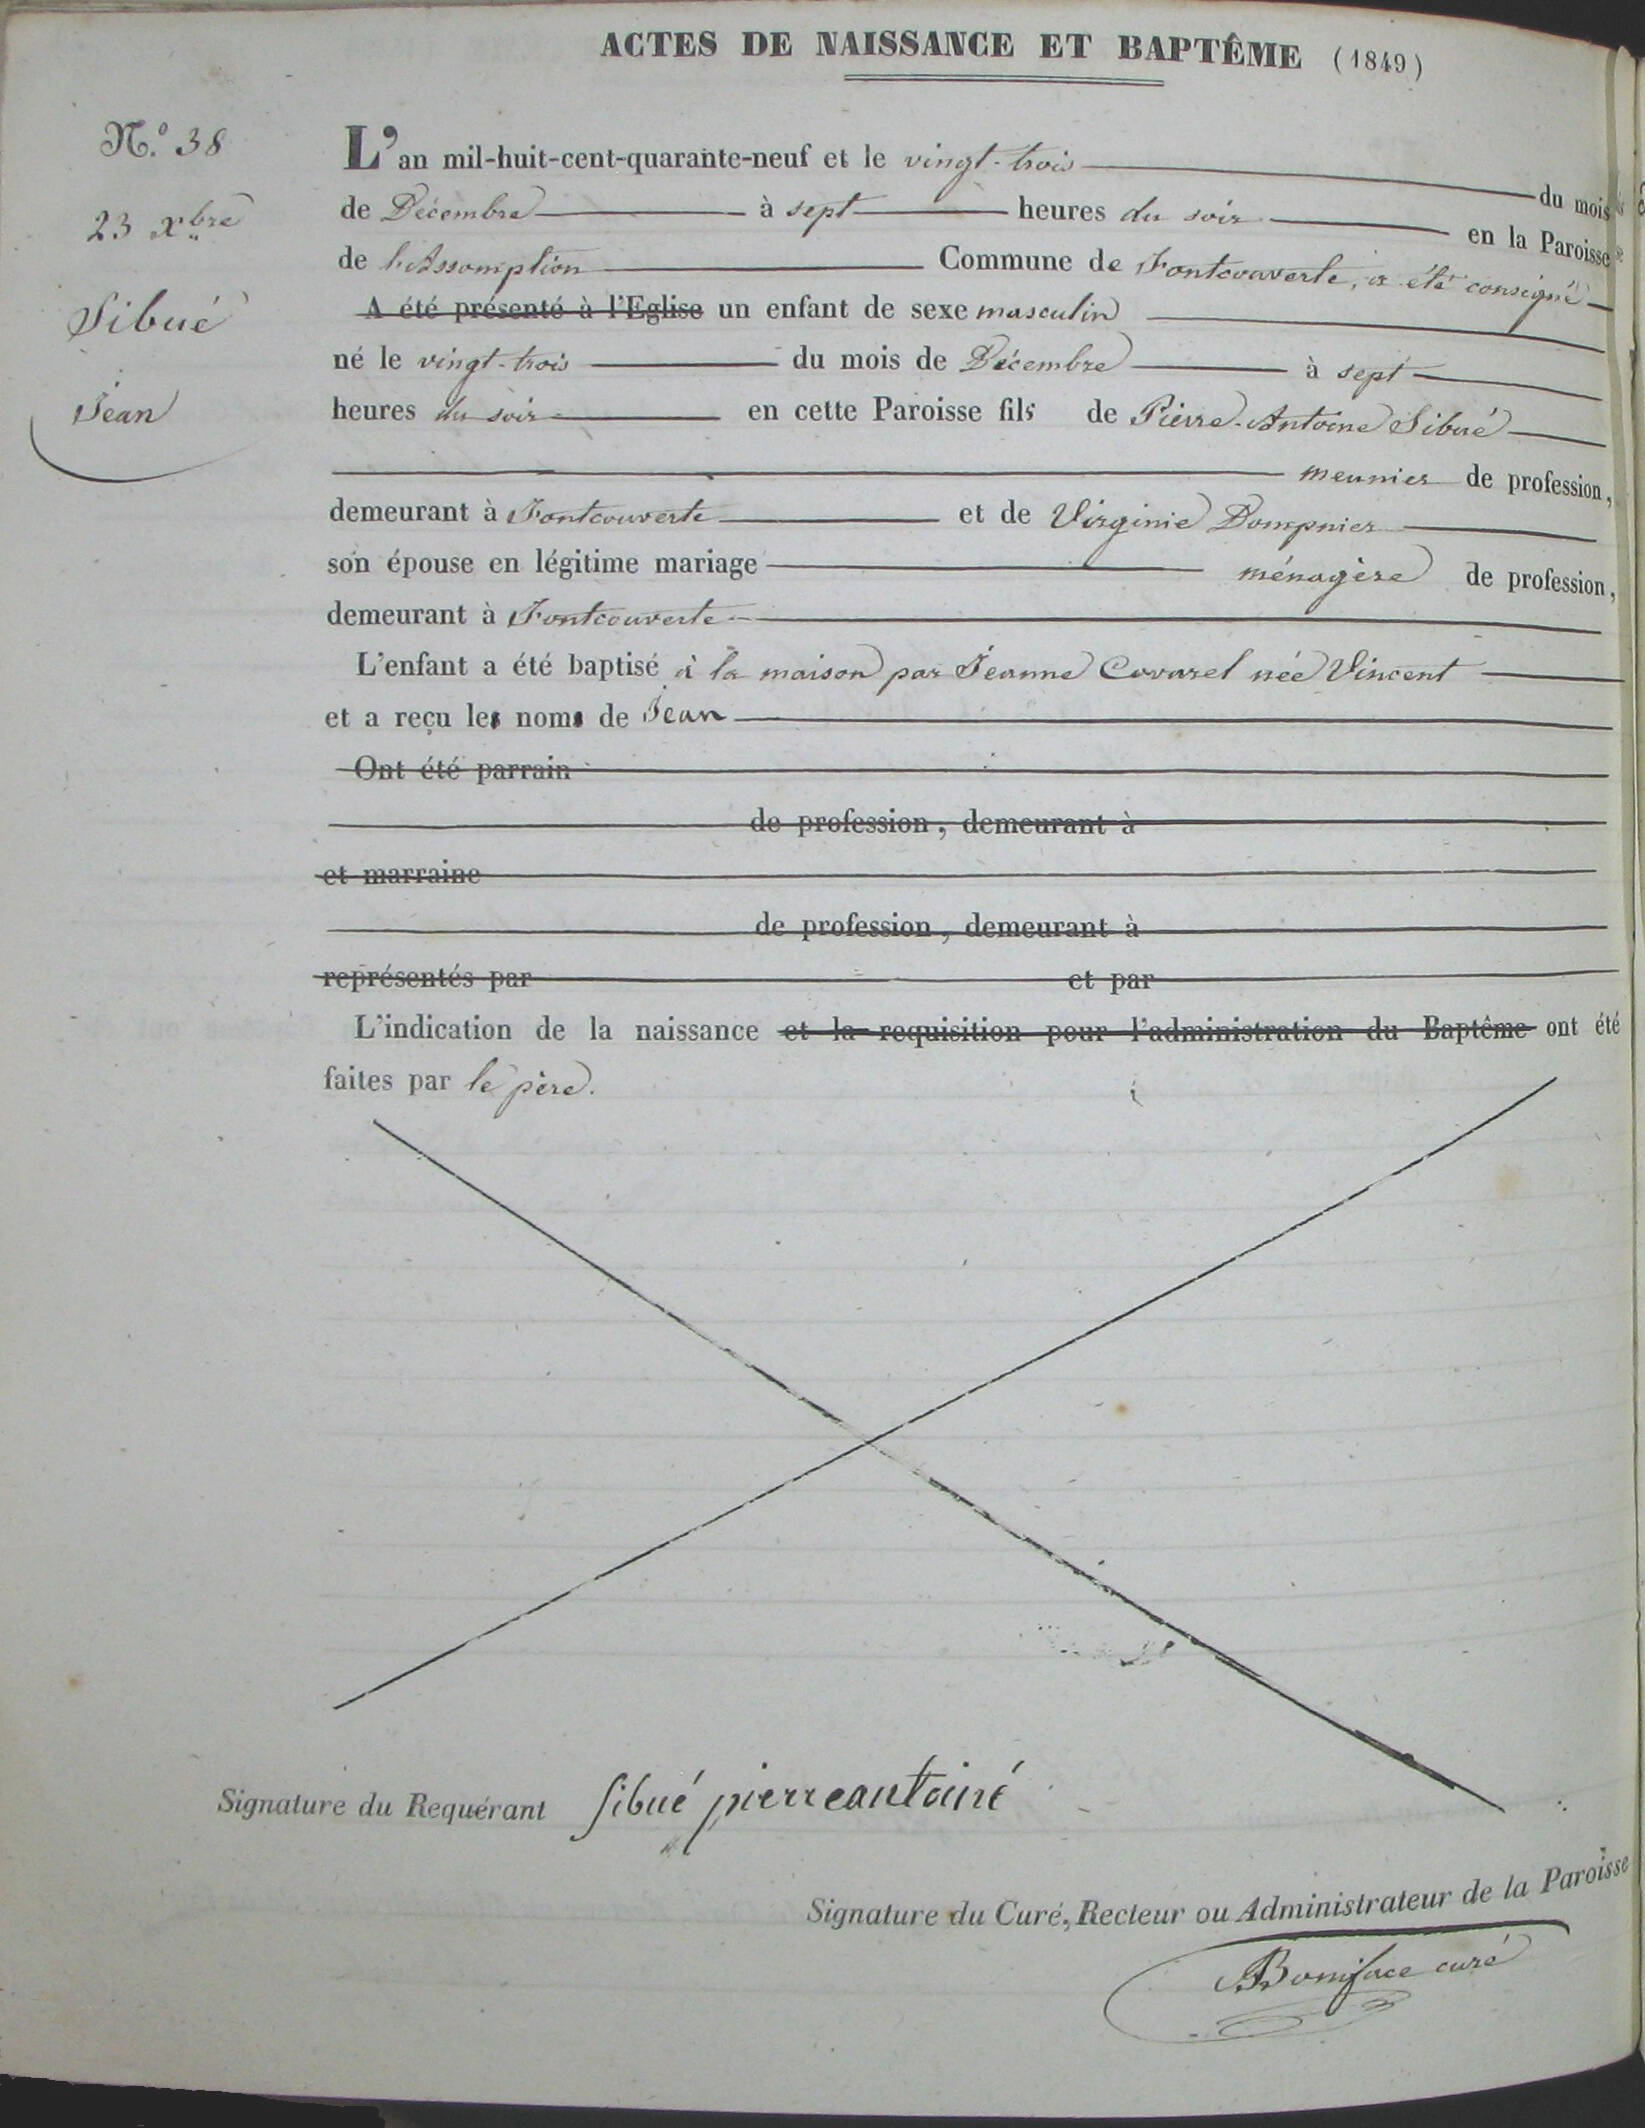 ACTES DE NAISSANCE ET BAPTÊME (1849)
N.º 38
23 Xbre
Sibué
Jean
L'an mil-huit-cent-quarante-neuf et le vingt-trois du mois
de Décembre à sept heures du soir en la Paroisse
de l'Assomption Commune de Fontcouverte, a été consigné
A été présenté à l'Eglise un enfant de sexe masculin
né le vingt-trois du mois de Décembre à sept
heures du soir en cette Paroisse fils de Pierre-Antoine Sibué
meunier de profession,
demeurant à Fontcouverte et de Virginie Dompnier
son épouse en légitime mariage ménagère de profession,
demeurant à Fontcouverte
L'enfant a été baptisé à la maison par Jeanne Covarel née Vincent
et a reçu les noms de Jean
Ont été parrain
de profession, demeurant à
et marraine
de profession, demeurant à
représentés par et par
L'indication de la naissance et la requisition pour l'administration du Baptême ont été
faites par le père.
Signature du Requérant Sibué pierreantoiné
Signature du Curé, Recteur ou Administrateur de la Paroisse
Boniface curé